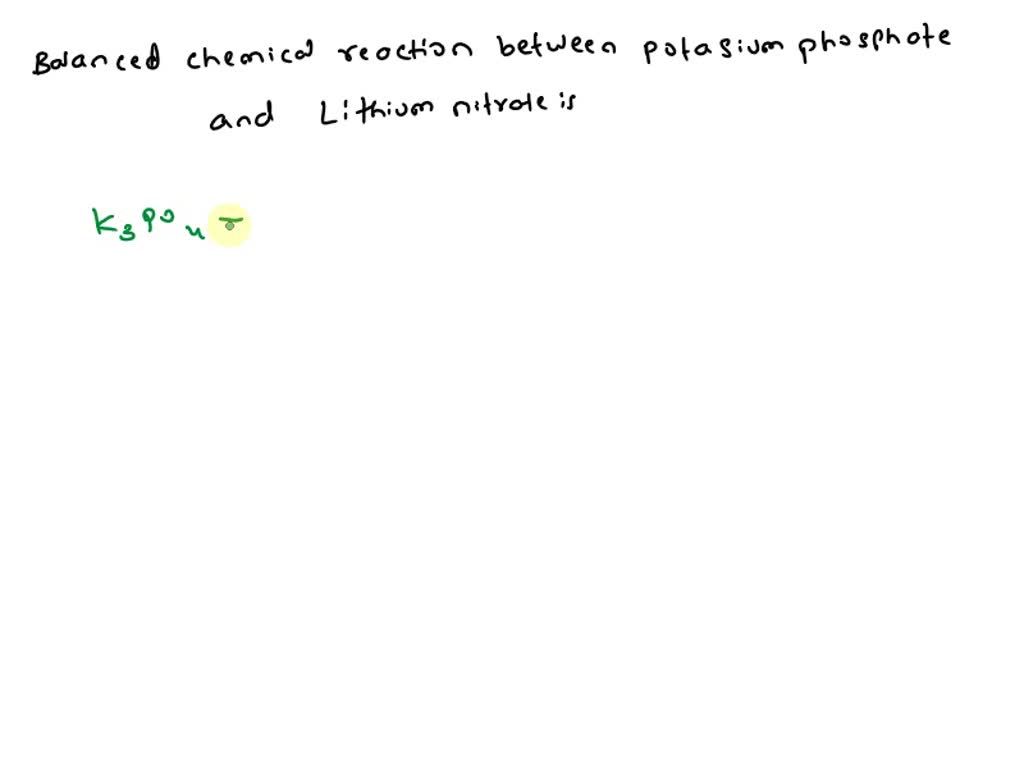 Balanced chemical reaction between potasium phosphate
and Lithium nitrate is
K3PO4